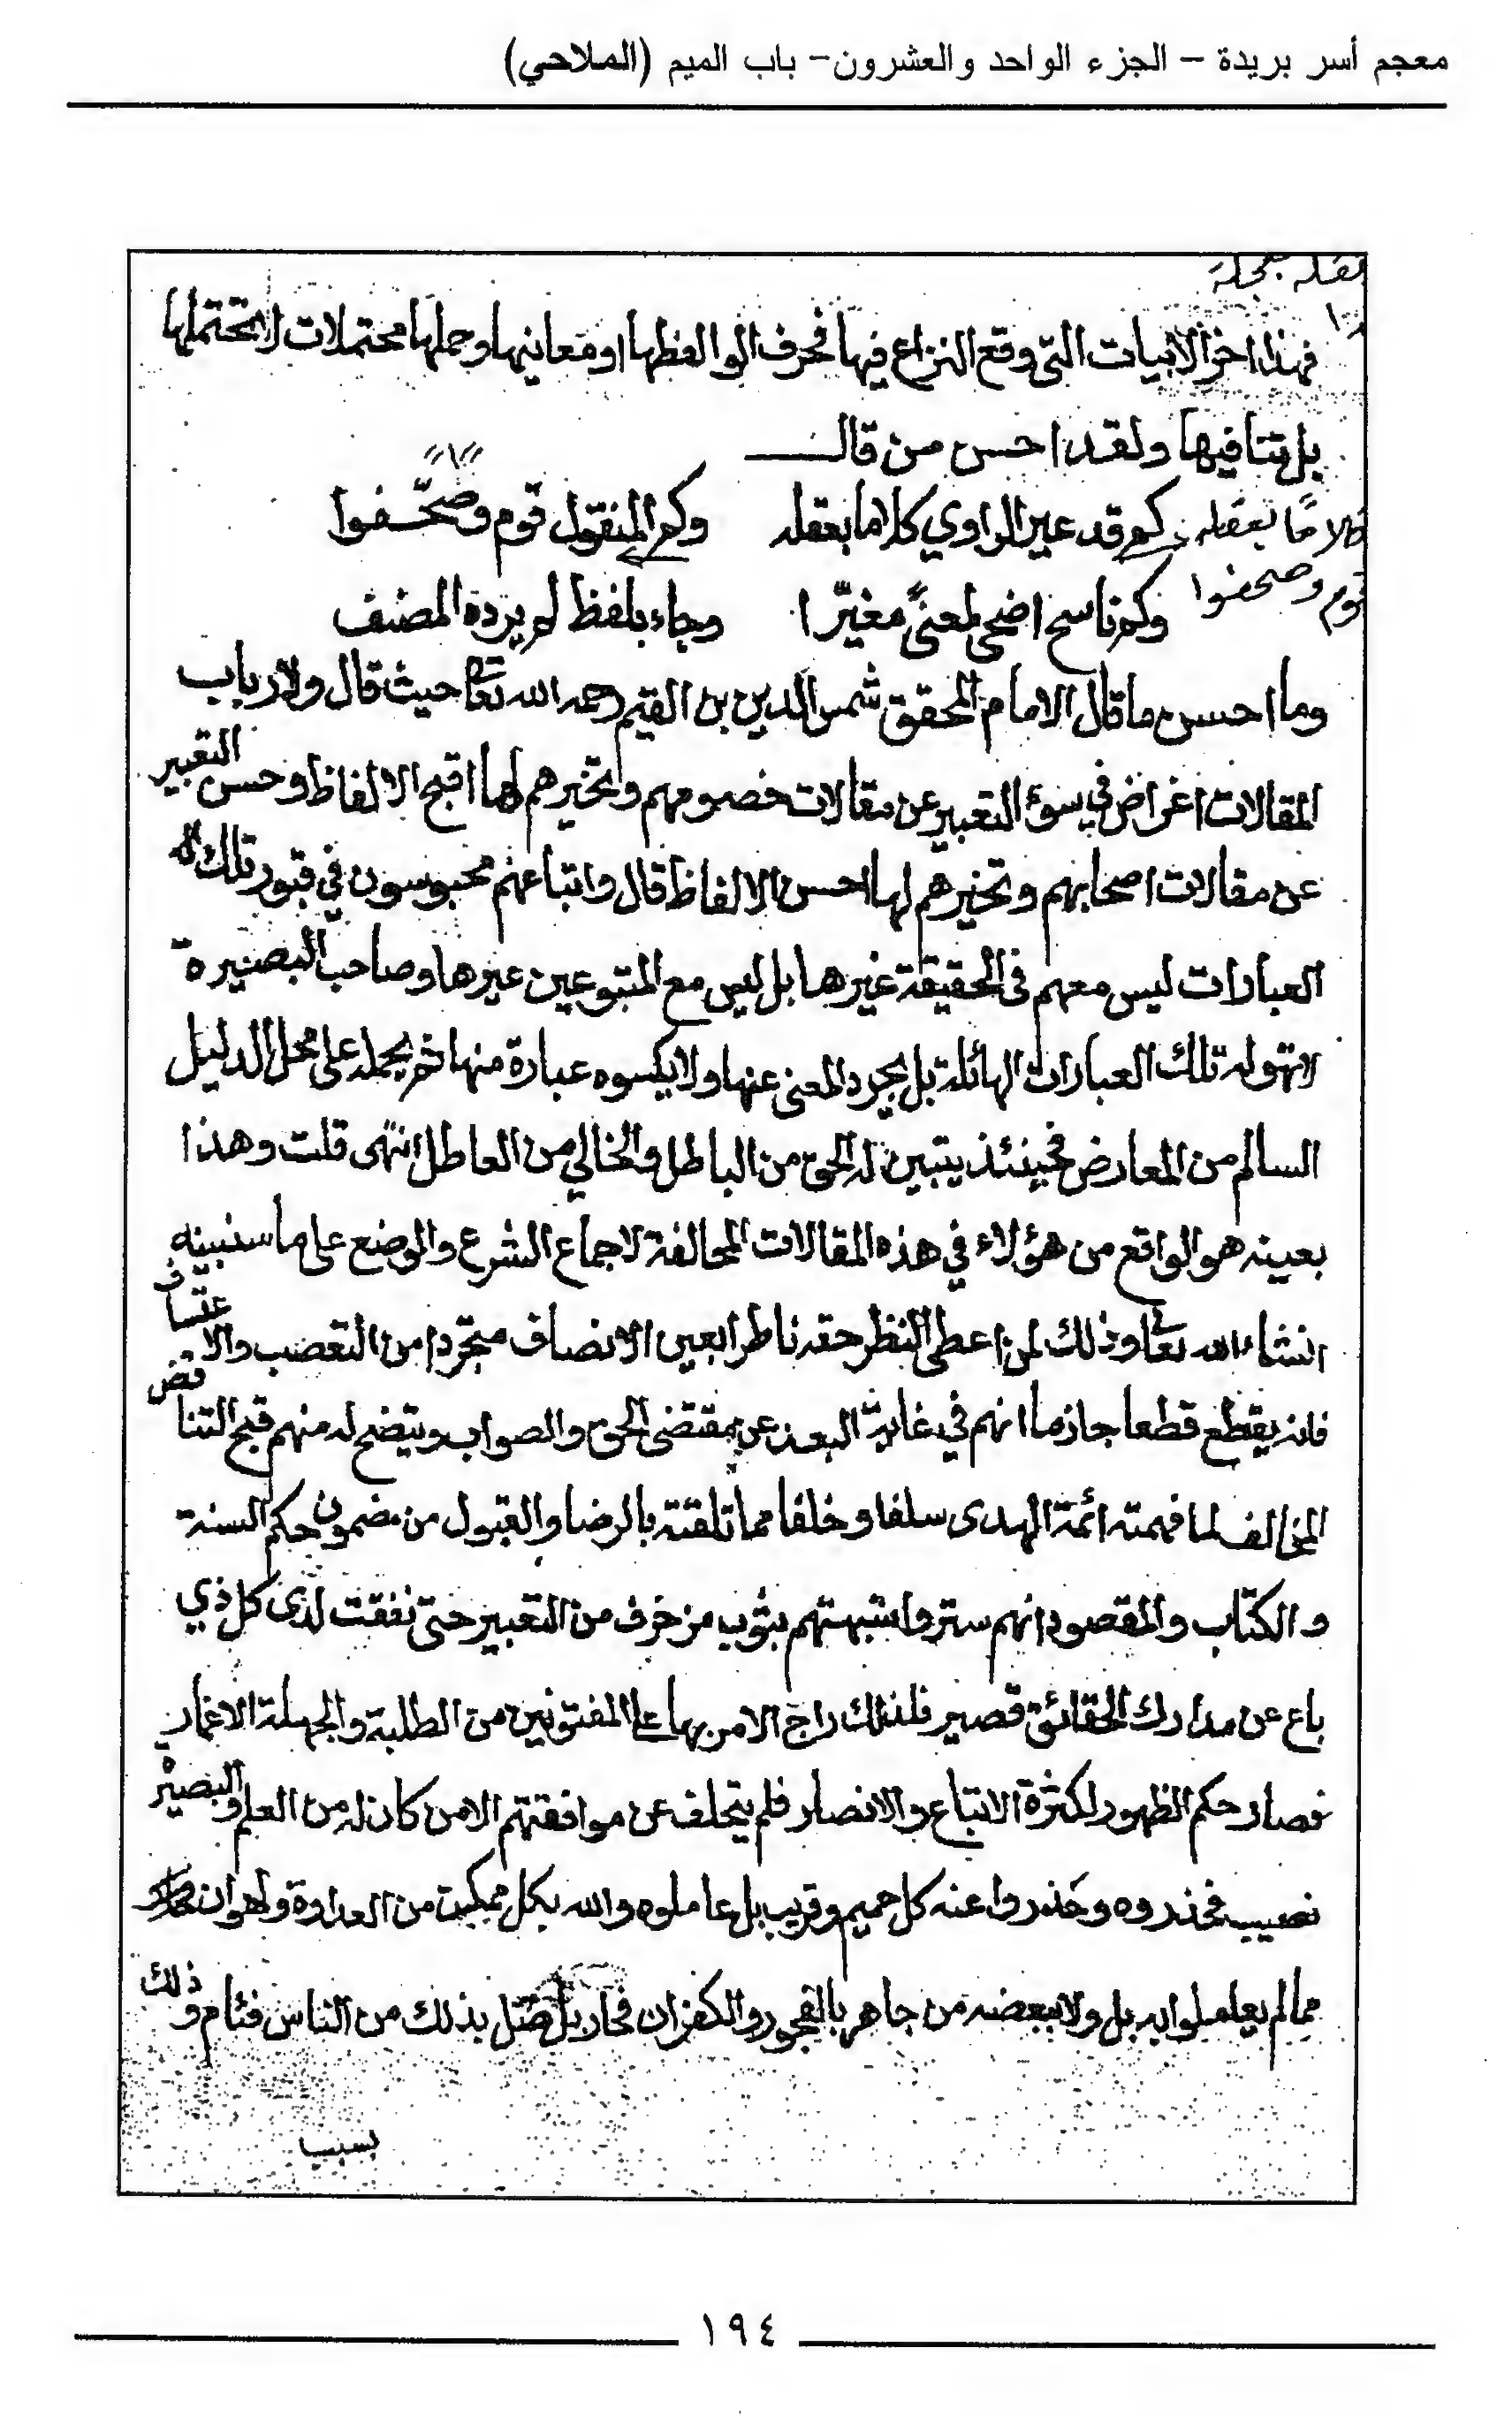 معجم أسر بريدة – الجزء الواحد والعشرون – باب الميم (الملاحي)
فهذا اخر الابيات التي وقع النزاع فيها فحرفوا الفظها او معانيها وحملها محتملات لا تحتملها
بل تنافيها ولقد احسن من قال
كلامًا بعقله
كم قد غير الراوي كلاما بعقله وكم المنقول قوم وصحّفوا
قوم وصحفوا
وكم ناسخ اضحى لمعنىً مغيّرا وجاء بلفظ لم يرده المصنف
وما احسن ما قال الامام المحقق شمس الدين بن القيم رحمه الله تعا حيث قال ولارباب
المقالات اغراض في سوء التعبير عن مقالات خصومهم وتخيرهم لها اقبح الالفاظ وحسن التعبير
عن مقالات اصحابهم وتخيرهم لها احسن الالفاظ قال واتباعهم محبوسون في قبور تلك
العبارات ليس معهم في الحقيقة غيرها بل ليس مع المتبوعين غيرها وصاحب البصيرة
لا تهوله تلك العبارات الهائلة بل يجرد المعنى عنها ولا يكسوه عبارة منها ثم يحمله على محل الدليل
السالم من المعارض فحينئذ يتبين له الحق من الباطل والخالي من العاطل انتهى قلت وهذا
بعينه هو الواقع من هؤلاء في هذه المقالات المخالفة لاجماع الشرع والوضع على ما سنبينه
انشاء الله تعا وذلك لمن اعطى النظر حقه ناظرا بعين الانصاف متجردا من التعصب والاعتساف
فانه يقطع قطعا جازما انهم في غاية البعد عن مقتضى الحق والصواب ويتضح له منهم قبح التناقض
المخالف لما فهمته ائمة الهدى سلفا وخلفا مما تلقته بالرضا والقبول من مضمون حكم السنة
والكتاب والمقصود انهم ستروا شبهتهم بثوب مزخرف من التعبير حتى نفقت لدى كل ذي
باع عن مدارك الحقائق قصير فلذلك راج الامر بها على المفتونين من الطلبة والجهلة الاغمار
فصار حكم الظهور لكثرة الاتباع والانصار فلم يتخلف عن موافقتهم الا من كان له من العلم والبصيرة
نصيب فحذروه وحذروا عنه كل حميم وقريب بل عاملوه والله بكل ممكن من العداوة والهوان
مما لم يعاملوا به بل ولا ببعضه من جاهر بالفجور والكفران فحار بل ضل بذلك من الناس فئام وذلك
بسبب
١٩٤